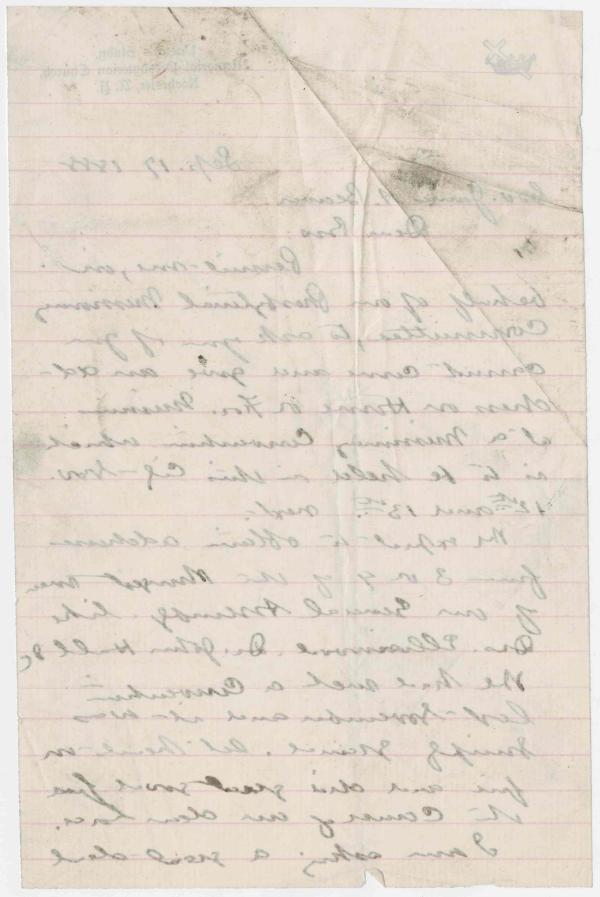 Memorial Presbyterian Church,
Rochester, N. Y.
Sep. 17 1888
Gov. James A Beaver
Dear Bro.
Permit me, on
behalf of our Presbyterial Missionary
Committee, to ask you if you
cannot come and give an ad-
dress on Home or For. Missions
at a Missionary Convention which
is to be held in this City Nov.
and 13th next.
We expect to obtain addresses
from 3 or 4 of the strongest men
of our General Assembly like
Drs. Ellinwood Dr. John Hall &c
We had such a Convention
last November and it was
let me
for and did great good for
the Cause of our dear Lord.
I am asking a great deal